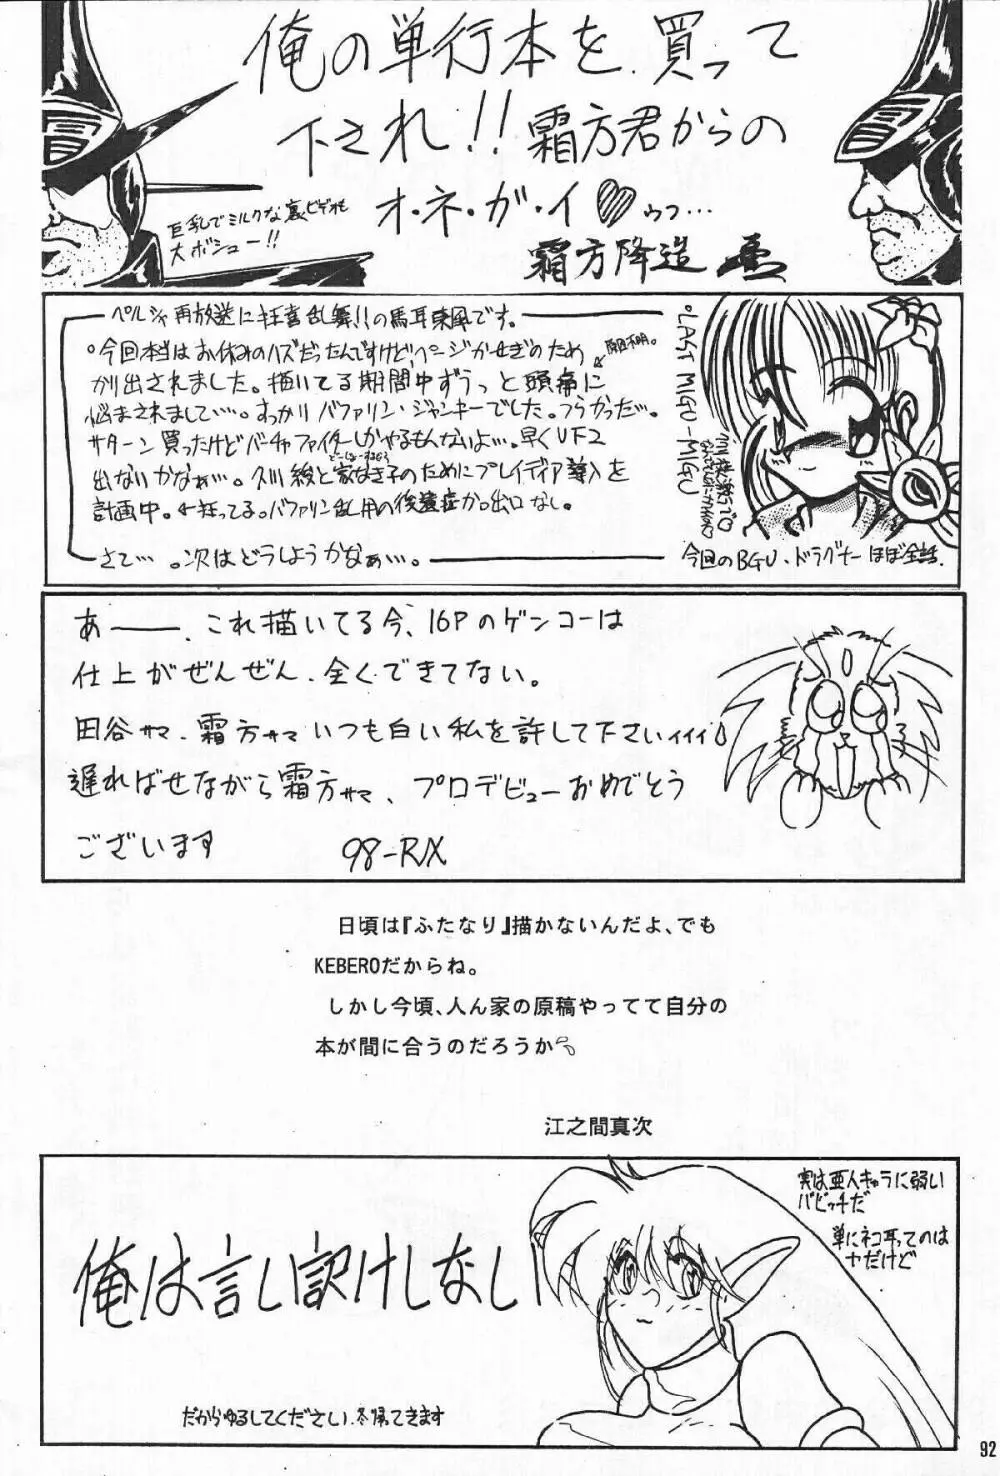 俺の単行本を買って
下され!!霜方君からの
オ・ネ・ガ・イ♡ゥフ…
巨乳でミルクな裏ビデオも
大ボシュー!!
霜方降造
ペルシャ再放送に狂喜乱舞!!の馬耳東風です。
今回本当はお休みのハズだったんですけどページかせぎのため
かり出されました。描いてる期間中ずうっと頭痛に
原因不明。
悩まされまして…。すっかりバファリン・ジャンキーでした。つらかった…。
サターン買ったけどバーチャファイターしかやるもんないよ…。早くVF2
出ないかなぁ…。 家なき子のためにプレイディア導入を
計画中。 狂ってる。バファリン乱用の後遺症か。出口なし。
さて…。次はどうしようかなぁ…。
LAST MIGU-MIGU
今回のBGV、ドラグナーほぼ全話.
あーーー、これ描いてる今、16Pのゲンコーは
仕上がぜんぜん、全くできてない。
田谷サマ、霜方サマいつも白い私を許して下さいィィィ
遅ればせながら霜方サマ、プロデビューおめでとう
ございます 98-RX
日頃は『ふたなり』描かないんだよ、でも
KEBEROだからね。
しかし今頃、人ん家の原稿やってて自分の
本が間に合うのだろうか
江之間真次
実は亜人キャラに弱い
バビッチだ
単にネコ耳てのは
ヤだけど
俺は言い訳けしない
だからゆるしてください.
92